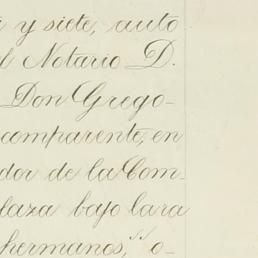 i y siete, auto
l Notario D.
Don Grego-
comparente, en
dor de la Com-
laza bajo lara
hermanos," o-